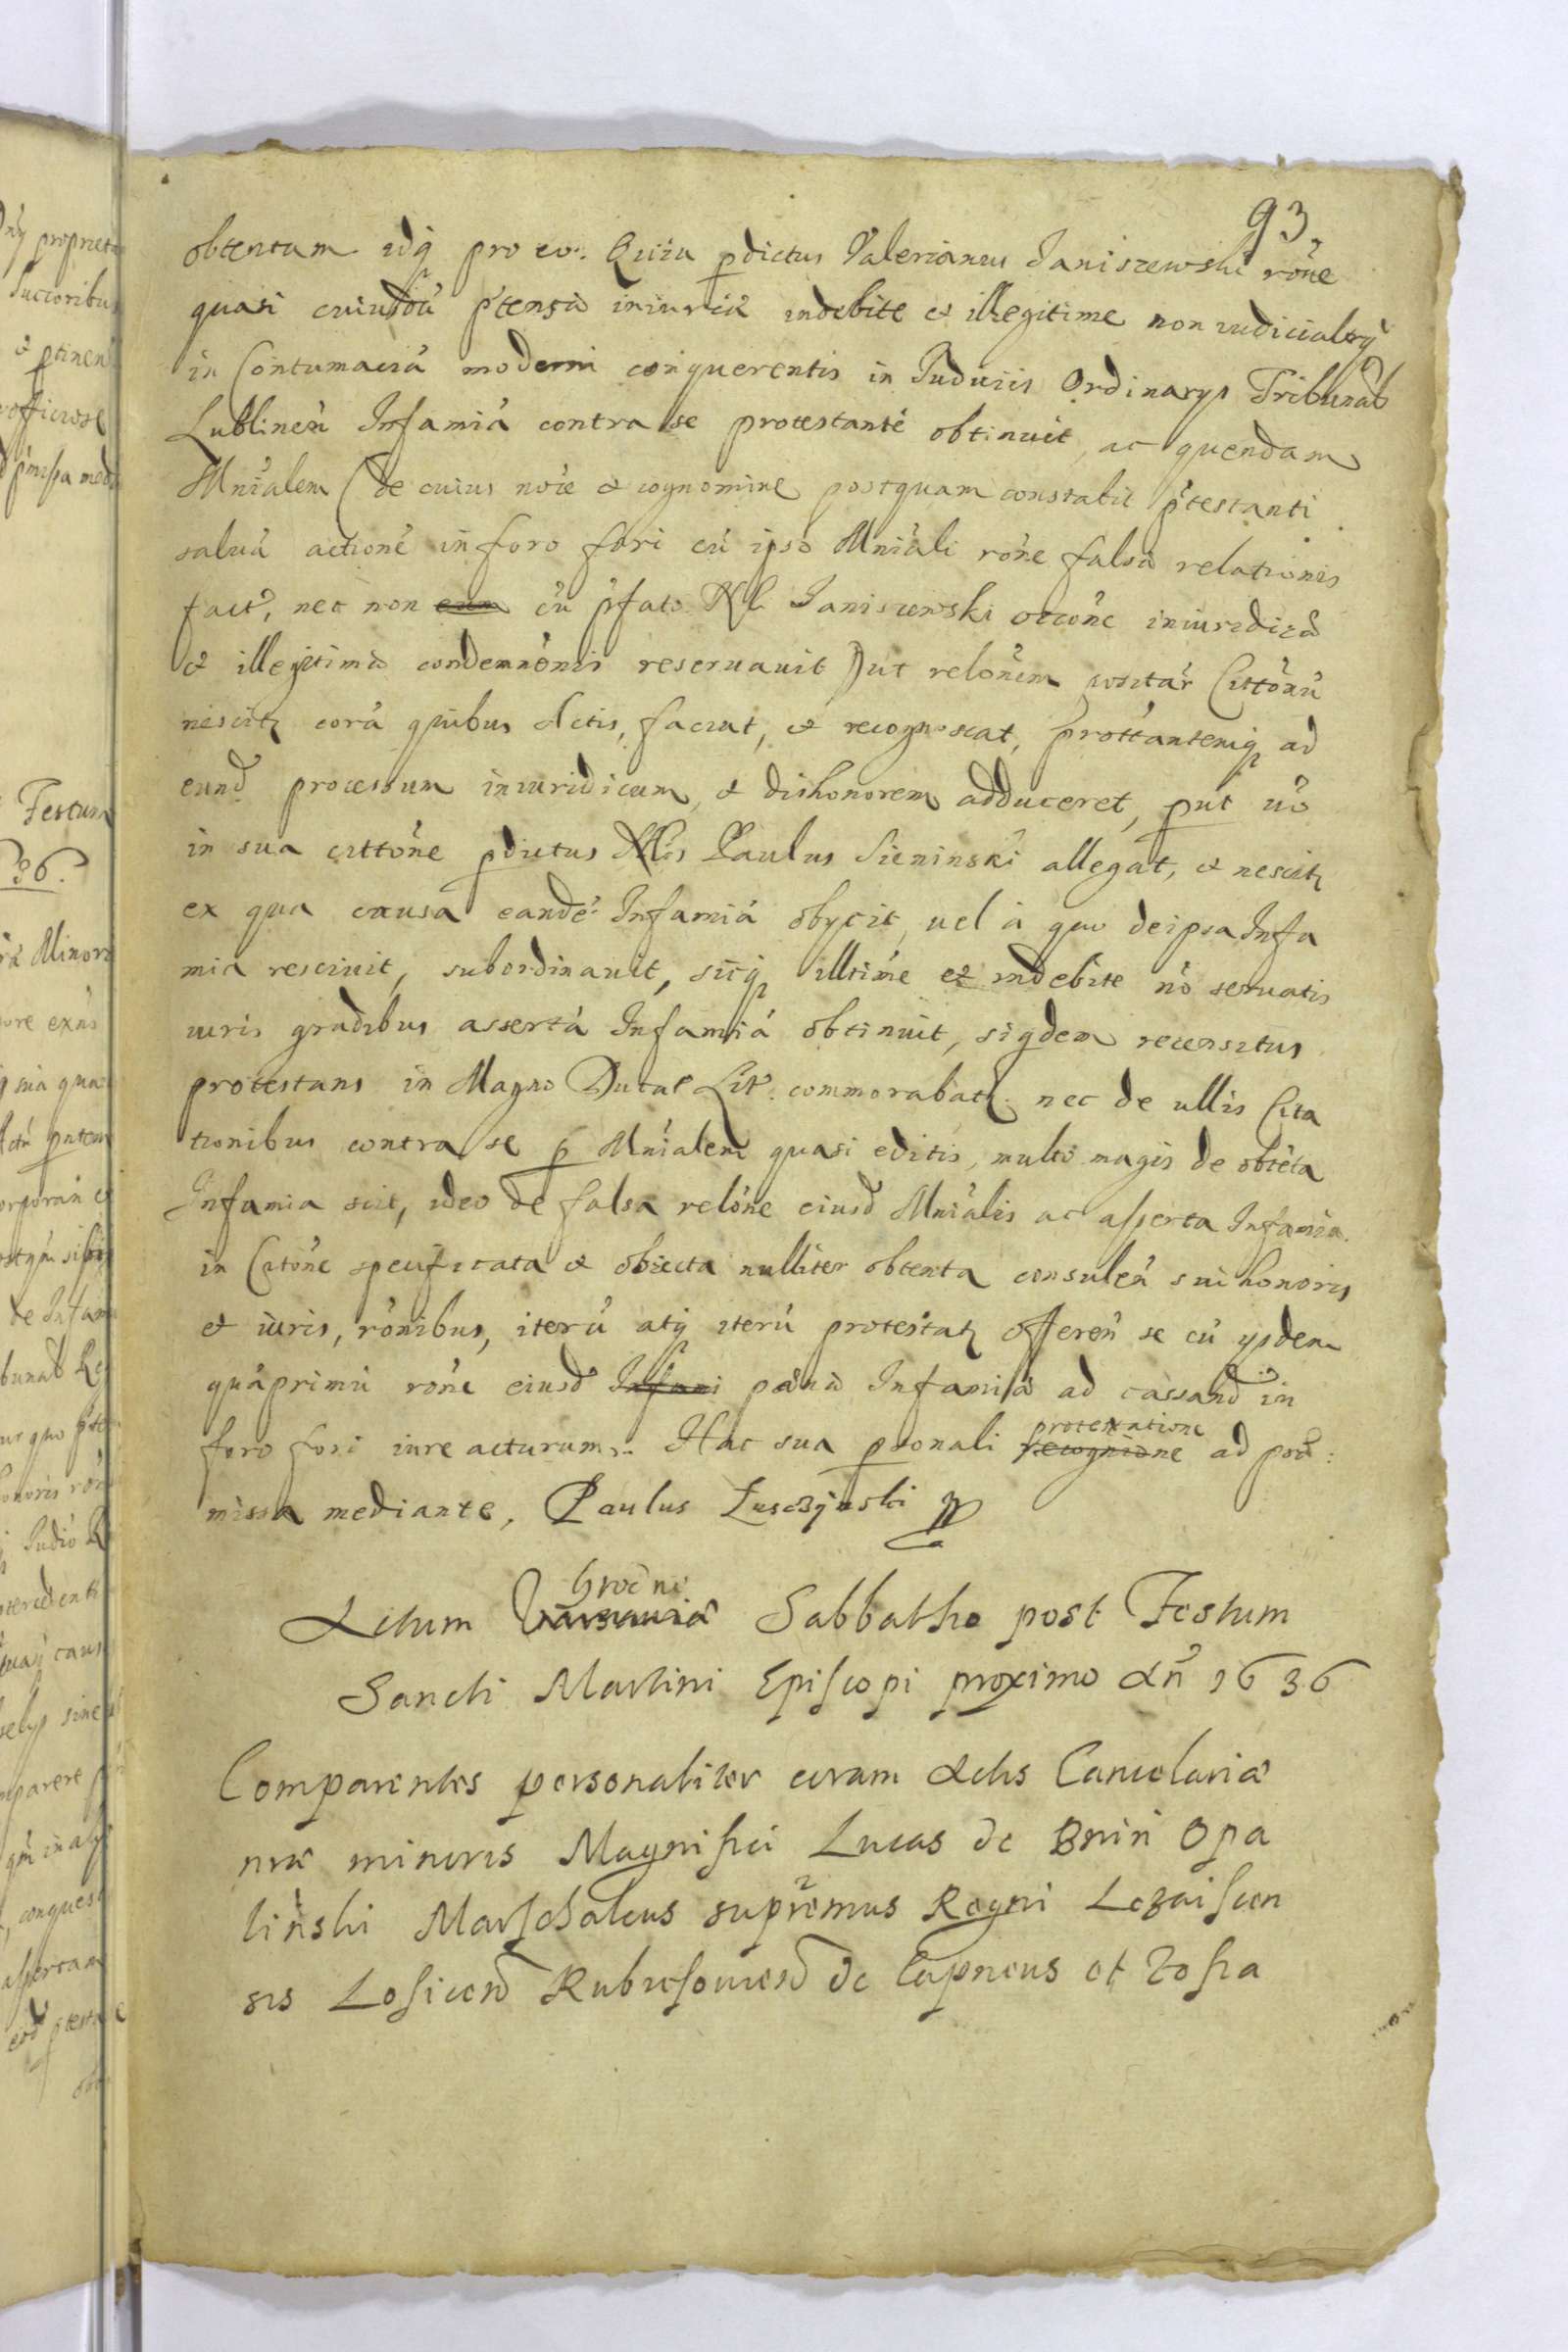 93
obtentam idq̃ pro eo. Quia p̱dictus Valerianus Janiszewski rõne
quasi cuiusdã p̃tensæ iniuriæ indebite et illegitime non iudicialr̃q̃
in Contumaciã moderni conquerentis in Judiciis Ordinarys Tribunal
Lublineñ Infamiã contra se protestantẽ obtinuit, ac quendam
Mñialem (de cuius nõie et cognomine postquam constabit p̃testanti
saluã actionẽ in foro fori cũ ipso Mniali rõne falsæ relationis
fact, nec non cũ p̃fato Nl. Janiszewski iniuridicæ
et illegitimæ condemnõnis reseruauit) ut relõnem Cittõnũ
nescitr corã quibus Actis, faciat, et recognoscat, prottantemq̃ ad
eund processum iniuridicum, et dishonorem adduceret, put uo
in sua cittõne p̱dictus Nlis Paulus Sieninski allegat, et nescitr
ex qua causa eandẽ Infamiã obycit, uel à quo de ipsa Infa
mia resciuit, subordinauit, sicq̃ illtime et indebite nõ seruatis
iuris gradibus assertã Infamiã obtinuit, siq̃dem recensitus
protestans in Magno Ducat Lit. commorabatr. nec de ullis Cita
tionibus contra se p̱ Mñialem quasi editis, multo magis de obtẽta
Infamia scit, ideo de falsa relõne eiusd Mñialis ac asserta Infamia
in Citõne specificata et obiecta nulliter obtenta consuleñ sui honoris
et iuris, rõnibus, iterũ atq̃ iterũ protestatr offereñ se cũ ysdem
quãprimũ rõne eiusd Infami pænæ Infamiæ ad cassand in
foro fori iure acturum. Hac sua p̱sonali protestatione ad præ:
missa mediante, Paulus Lusczynski
Actum Grodnæ Sabbatho post Festum
Sancti Martini Episcopi proximo Añ 1636
Comparentes personaliter coram Actis Cancelariæ
nræ minoris Magnifici Lucas de Bnin Opa
linski Marschalcus supr̃emus Regni Lezaiscen
sis Losicen Rubiesouien de Capneus et Zofia